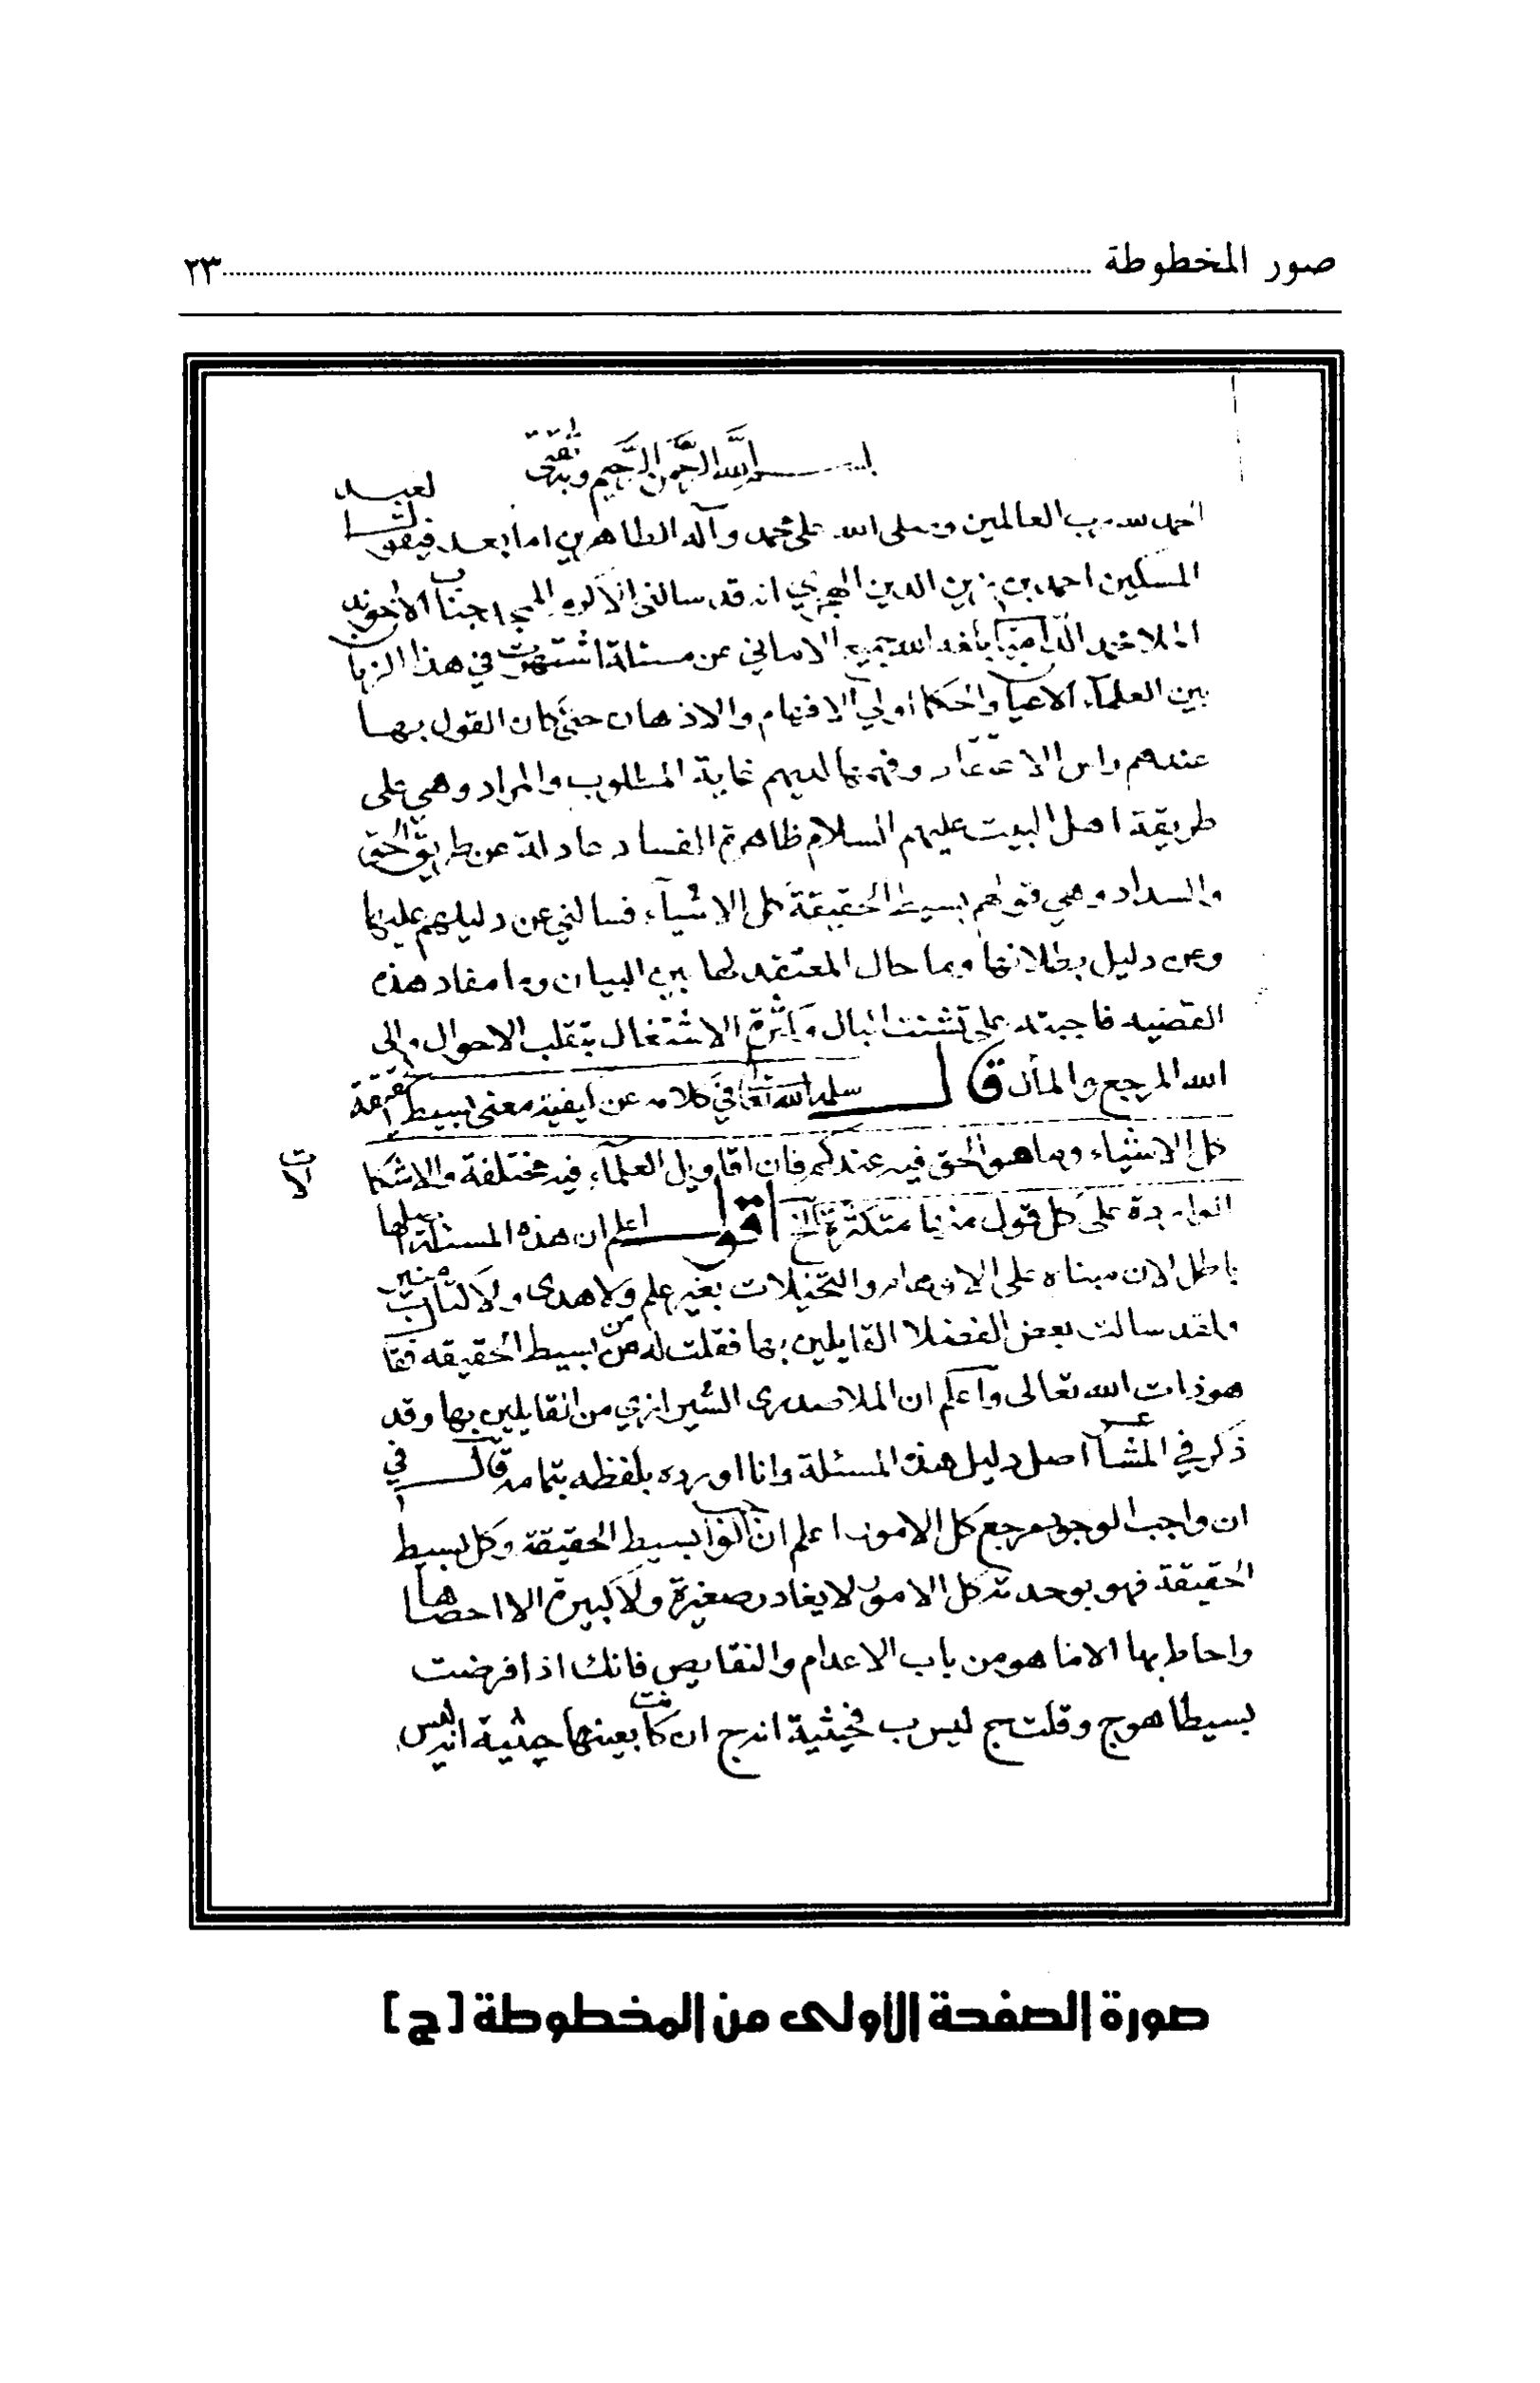 صور المخطوطة ........ ٢٣
بسم الله الرحمن الرحيم وبه ثقتي
الحمد لله رب العالمين وصلى الله على محمد وآله الطاهرين اما بعد فيقول العبد
المسكين احمد بن زين الدين الهجري انه قد سالني الاكرم الممجد جناب الاخوند
الملا محمد الدامغاني بلغه الله جميع الاماني عن مسئلة اشتهرت في هذا الزمان
بين العلماء الاعيان والحكما اولي الافهام والاذهان حتى كان القول بها
عندهم راس الاعتقاد وفهمها لديهم غاية المطلوب والمراد وهي على
طريقة اهل البيت عليهم السلام ظاهرة الفساد عادلة عن طريق الحق
والسداد وهي قولهم بسيط الحقيقة كل الاشياء فسالني عن دليلهم عليها
وعن دليل بطلانها وما حال المعتقد لها بين البيان وما مفاد هذه
القضيه فاجبته على تشتت البال وكثرة الاشتغال بتقلب الاحوال والى
الله المرجع والمآل قال سلمه الله تعا في كلامه عن كيفية معنى بسيط الحقيقة
كل الاشياء وما هو الحق فيه عندكم فان اقاويل العلماء فيه مختلفة والاشكالات
الواردة على كل قول منها متكثرة الخ اقول اعلم ان هذه المسئلة اصلها
باطل لان مبناه على الاوهام والتخيلات بغير علم ولا هدى ولا كتاب منير
ولقد سالت بعض الفضلا القايلين بها فقلت له من بسيط الحقيقه فقا
هو ذات الله تعالى واعلم ان الملا صدرى الشيرازي من القايلين بها وقد
ذكر في المشاعر اصل دليل هذه المسئلة وانا اورده بلفظه بتمامه قال في
ان واجب الوجود مرجع كل الامور اعلم ان الواجب بسيط الحقيقة وكل بسيط
الحقيقة فهو بوحدته كل الامور لا يغادر صغيرة ولا كبيرة الا احصاها
واحاط بها الا ما هو من باب الاعدام والنقايص فانك اذا فرضت
بسيطا هو ج وقلت ج ليس ب فحيثية انه ج ان كانت بعينها حيثية انه ليس
صورة الصفحة الأولى من المخطوطة [ج]